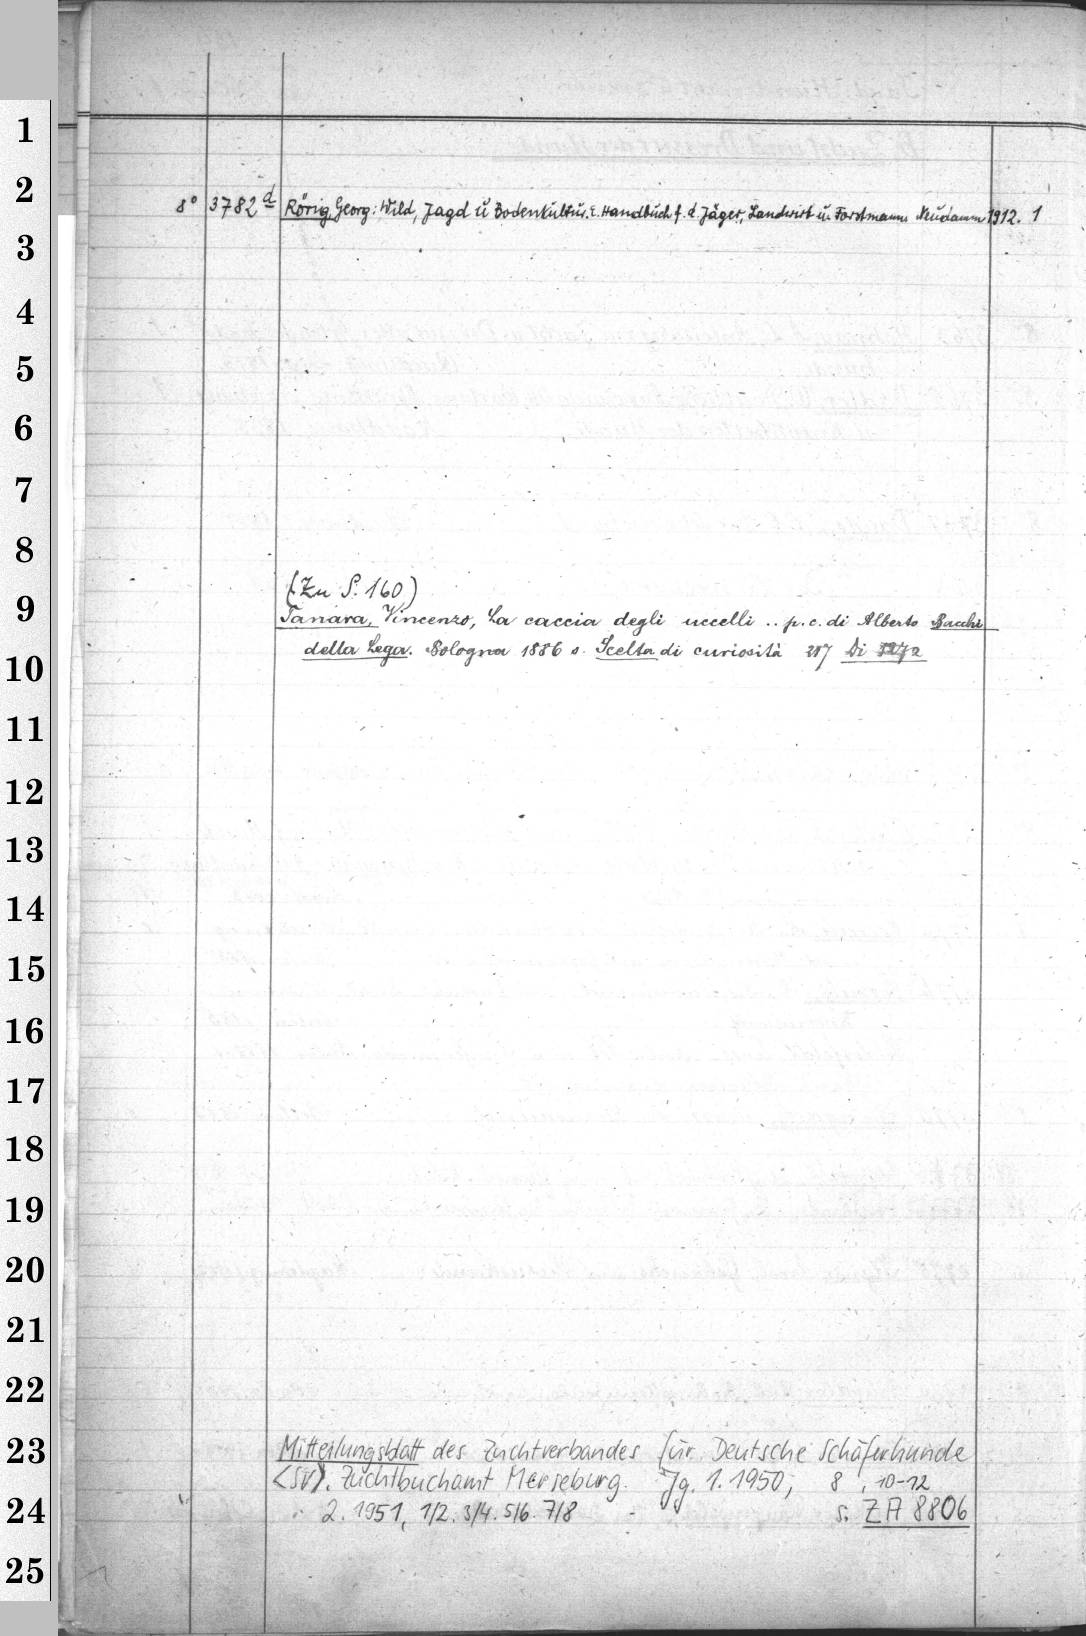 1
2
8° 3782 d Rörig, Georg: Wild, Jagd ŭ Bodenkultur. E. Handbuch f. d. Jäger, Landwirt ŭ. Forstmann. Neudamm 1912. 1
3
4
5
6
7
8
(Zu S. 160)
9
Tanara, Vincenzo, La caccia degli uccelli .. p. c. di Alberto Bacchi
della Lega. Bologna 1886 s. Scelta di curiosità 217 Di
10
11
12
13
14
15
16
17
18
19
20
21
22
23 Mitteilungsblatt des Zuchtverbandes für Deutsche Schäferhunde
<SV>. Zuchtbuchamt Merseburg. Jg. 1. 1950, 8, 10-12
24 2. 1951, 1/2. 3/4. 5/6. 7/8 s. ZA 8806
25